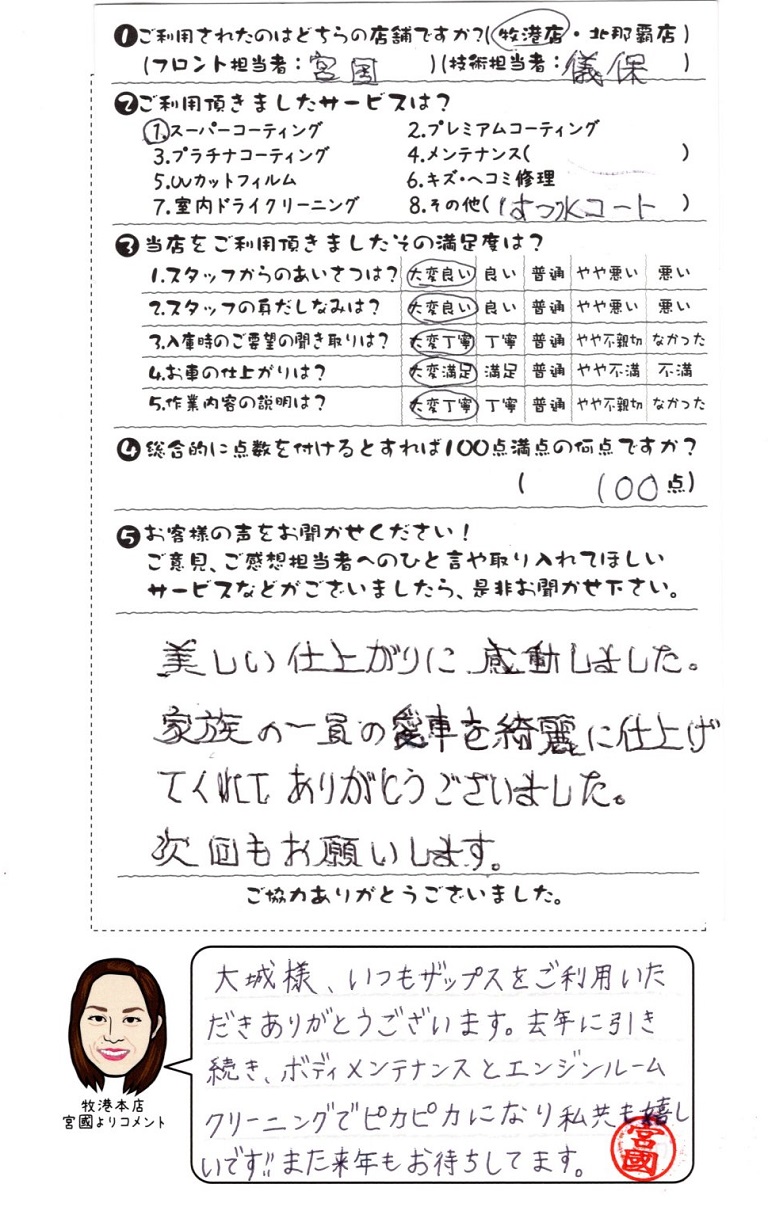 ❶ご利用されたのはどちらの店舗ですか?(牧港店・北那覇店)
(フロント担当者:宮國)(技術担当者:儀保)
❷ご利用頂きましたサービスは?
1.スーパーコーティング 2.プレミアムコーティング
3.プラチナコーティング 4.メンテナンス( )
5.UVカットフィルム 6.キズ・ヘコミ修理
7.室内ドライクリーニング 8.その他(はっ水コート)
❸当店をご利用頂きましたその満足度は?
1.スタッフからのあいさつは? 大変良い 良い 普通 やや悪い 悪い
2.スタッフの身だしなみは? 大変良い 良い 普通 やや悪い 悪い
3.入庫時のご要望の聞き取りは? 大変丁寧 丁寧 普通 やや不親切 なかった
4.お車の仕上がりは? 大変満足 満足 普通 やや不満 不満
5.作業内容の説明は? 大変丁寧 丁寧 普通 やや不親切 なかった
❹総合的に点数を付けるとすれば100点満点の何点ですか?
(100点)
❺お客様の声をお聞かせください!
ご意見、ご感想担当者へのひと言や取り入れてほしい
サービスなどがございましたら、是非お聞かせ下さい。
美しい仕上がりに感動しました。
家族の一員の愛車を綺麗に仕上げ
てくれて ありがとうございました。
次回もお願いします。
ご協力ありがとうございました。
大城様、いつもザップスをご利用いた
だきありがとうございます。去年に引き
続き、ボディメンテナンスとエンジンルーム
クリーニングでピカピカになり私共も嬉し
いです!!また来年もお待ちしてます。
宮國
牧港本店
宮國よりコメント